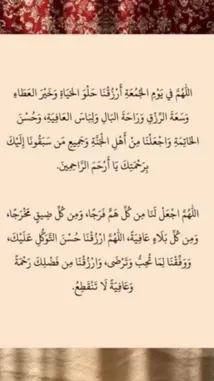 اللَّهُمَّ فِي يَوْمِ الْجُمُعَةِ أَرْزُقْنَا حَلْوَ الْحَيَاةِ وَخَيْرَ الْعَطَاءِ
وَسَعَةَ الرِّزْقِ وَرَاحَةَ الْبَالِ وَلِبَاسَ الْعَافِيَةِ، وَحُسْنَ
الْخَاتِمَةِ وَاجْعَلْنَا مِنْ أَهْلِ الْجَنَّةِ وَجَمِيعِ مَنْ سَبَقُونَا إِلَيْكَ
بِرَحْمَتِكَ يَا أَرْحَمَ الرَّاحِمِينَ.
اللَّهُمَّ اجْعَلْ لَنَا مِن كُلِّ هَمٍّ فَرَجًا، وَمِن كُلِّ ضِيقٍ مَخْرَجًا،
وَمِن كُلِّ بَلَاءٍ عَافِيَةً، اللَّهُمَّ ارْزُقْنَا حُسْنَ التَّوَكُّلِ عَلَيْكَ،
وَوَفِّقْنَا لِمَا تُحِبُّ وَتَرْضَى، وَارْزُقْنَا مِن فَضْلِكَ رَحْمَةً
وَعَافِيَةً لَا تَنْقَطِعُ.